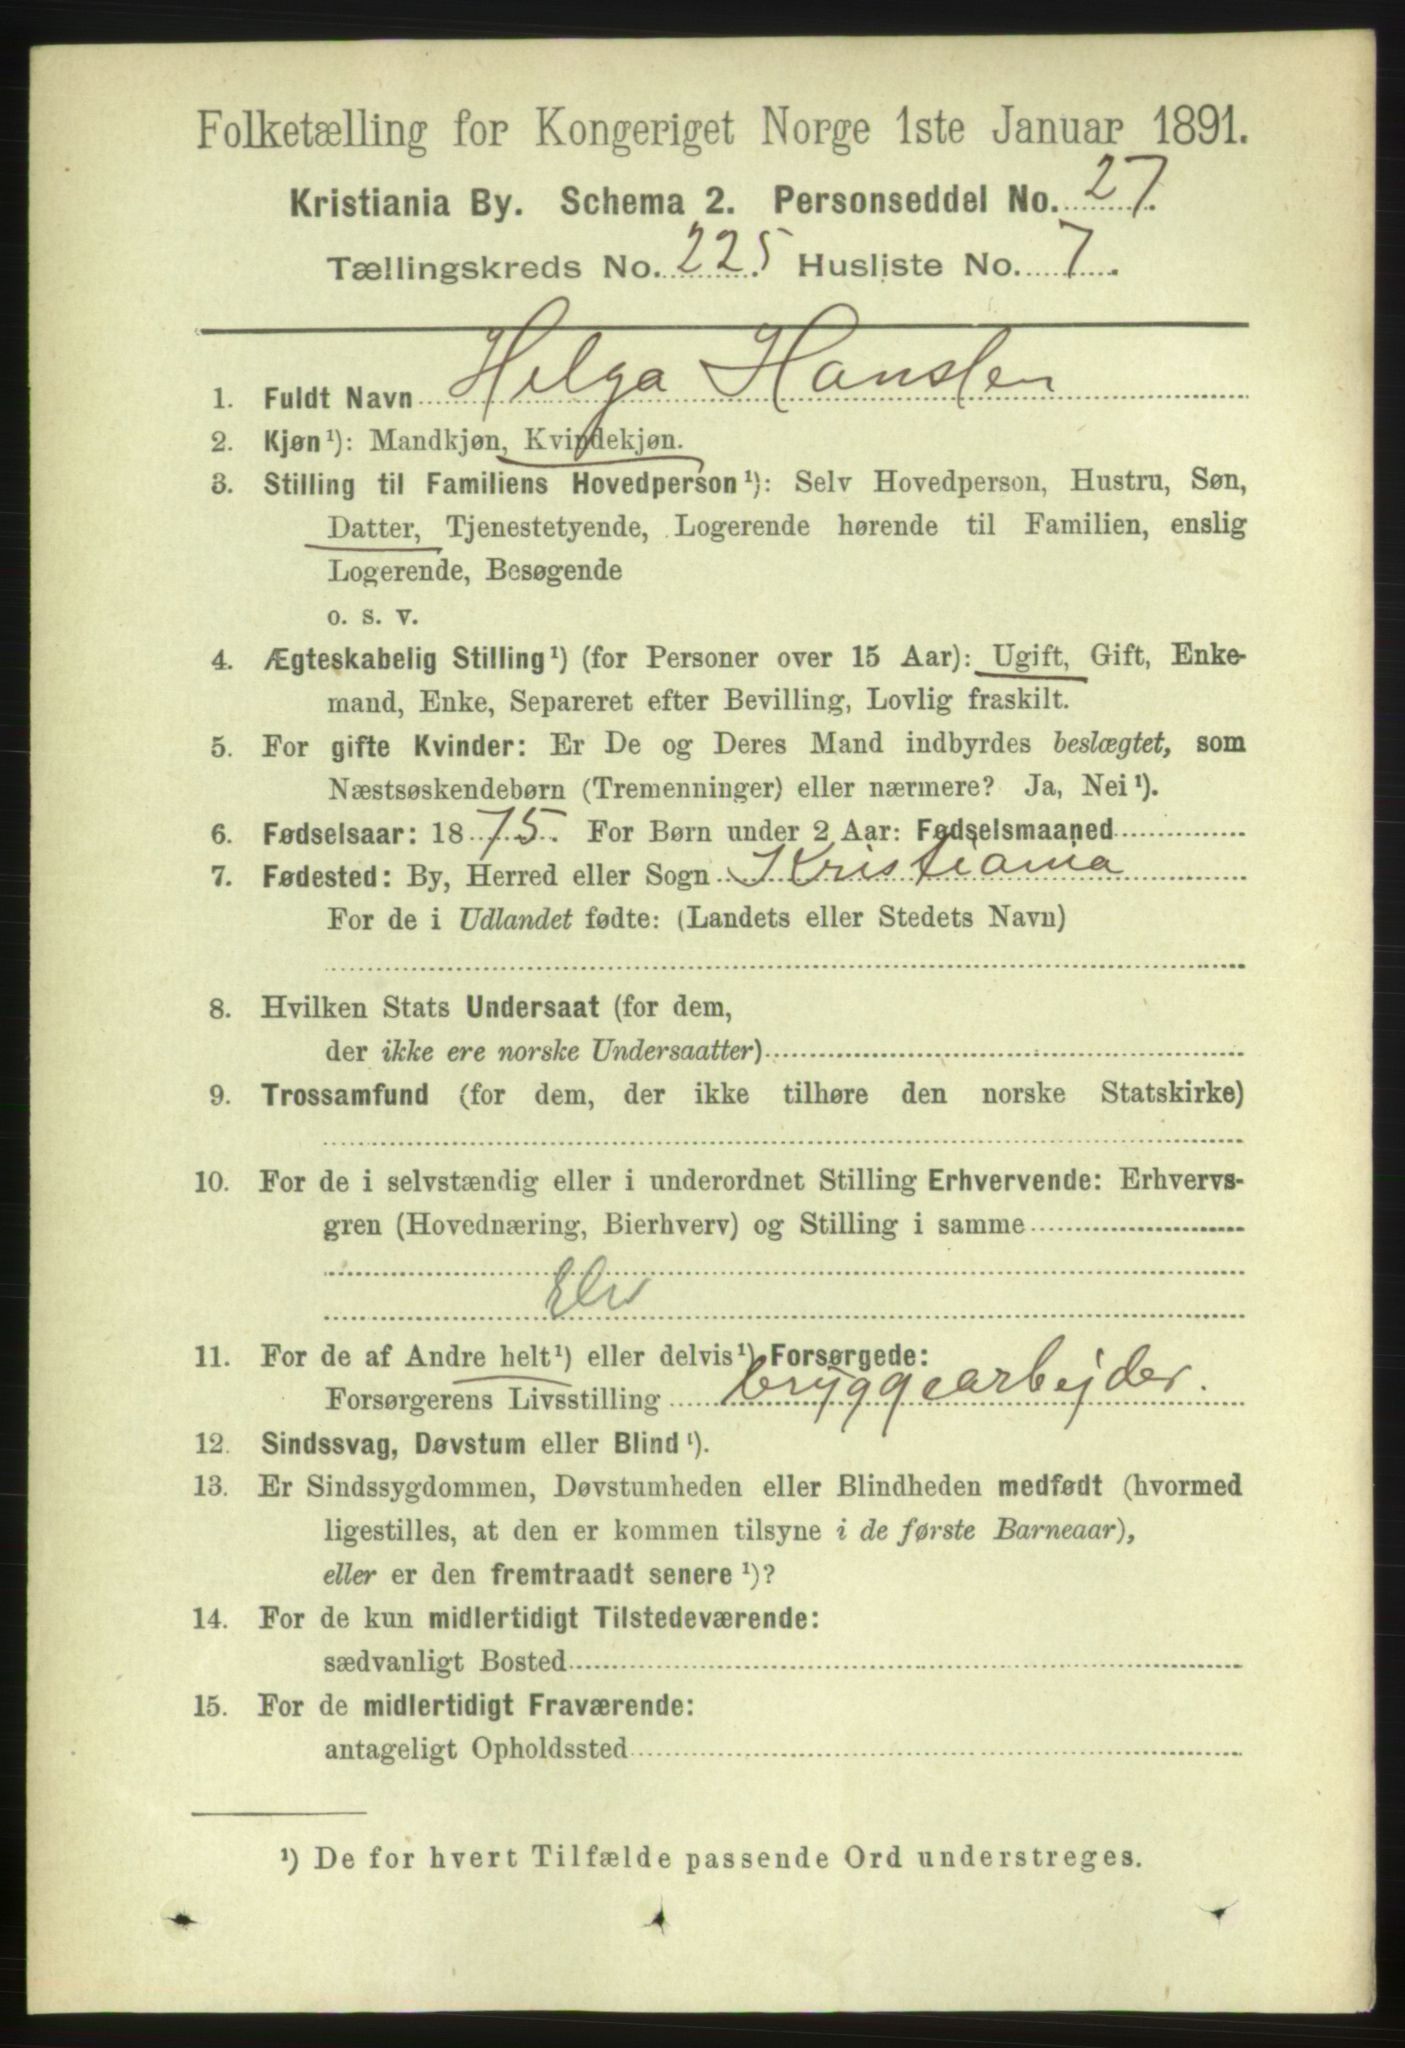 Folketælling for Kongeriget Norge 1ste Januar 1891.
Kristiania By. Schema 2. Personseddel No. 27.
Tællingskreds No. 225 Husliste No. 7.
1. Fuldt Navn Helga Hansen
2. Kjøn¹): Mandkjøn, Kvindekjøn.
3. Stilling til Familiens Hovedperson¹): Selv Hovedperson, Hustru, Søn,
Datter, Tjenestetyende, Logerende hørende til Familien, enslig
Logerende, Besøgende
o. s. v.
4. Ægteskabelig Stilling¹) (for Personer over 15 Aar): Ugift, Gift, Enke-
mand, Enke, Separeret efter Bevilling, Lovlig fraskilt.
5. For gifte Kvinder: Er De og Deres Mand indbyrdes beslægtet, som
Næstsøskendebørn (Tremenninger) eller nærmere? Ja, Nei¹).
6. Fødselsaar: 1875. For Børn under 2 Aar: Fødselsmaaned
7. Fødested: By, Herred eller Sogn Kristiania
For de i Udlandet fødte: (Landets eller Stedets Navn)
8. Hvilken Stats Undersaat (for dem,
der ikke ere norske Undersaatter)
9. Trossamfund (for dem, der ikke tilhøre den norske Statskirke)
10. For de i selvstændig eller i underordnet Stilling Erhvervende: Erhvervs-
gren (Hovednæring, Bierhverv) og Stilling i samme
Elev
11. For de af Andre helt¹) eller delvis¹) Forsørgede:
Forsørgerens Livsstilling bryggearbejder.
12. Sindssvag, Døvstum eller Blind¹).
13. Er Sindssygdommen, Døvstumheden eller Blindheden medfødt (hvormed
ligestilles, at den er kommen tilsyne i de første Barneaar),
eller er den fremtraadt senere¹)?
14. For de kun midlertidigt Tilstedeværende:
sædvanligt Bosted
15. For de midlertidigt Fraværende:
antageligt Opholdssted
¹) De for hvert Tilfælde passende Ord understreges.